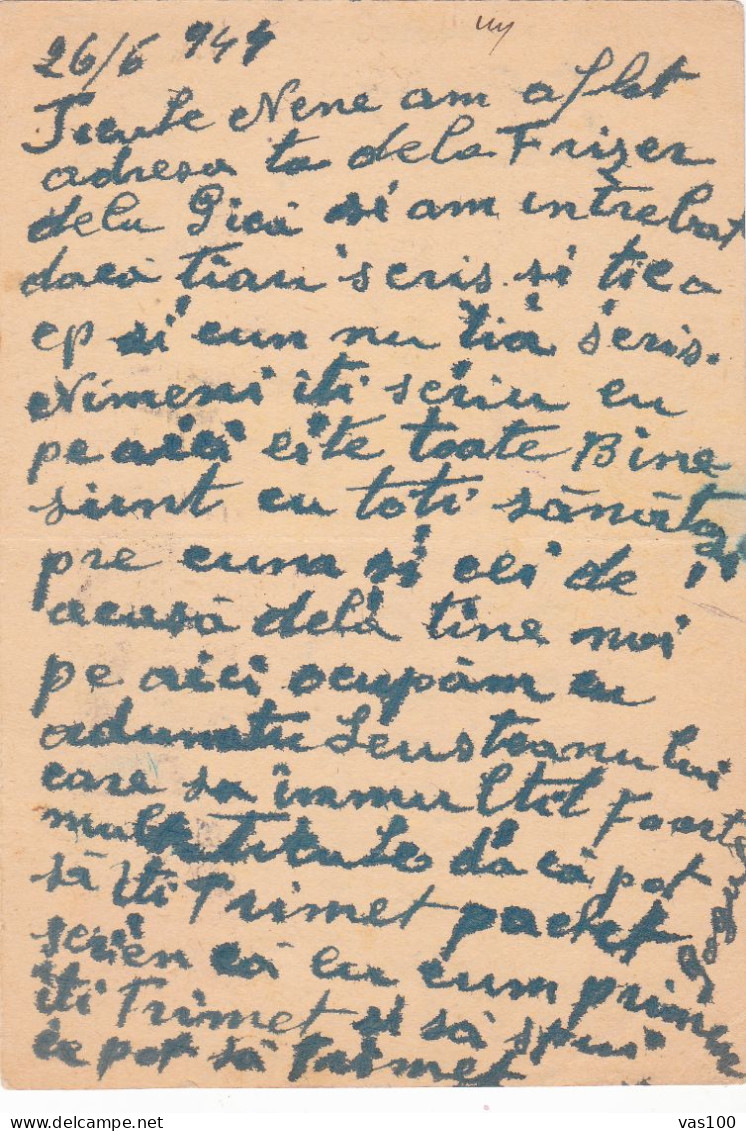 26/6 944
Ticule Nene am aflat
adresa ta dela Frizer
dela Gică si am intrebat
dacă tiau scris si tica
ep si cun nu tia scris.
Nimeni iti scriu eu
pe aici este toate Bine
siunt cu toti sănătosi
pre cuna si cei de
acasă dela tine noi
pe aici ocupăm cu
adunatu Leusteanului
care sa immultit Foarte
mult ticule dacă pot
să iti Trimet pachet
scrien că eu cum primesc
iti Trimet si să spui
ce pot să trimet
vas100